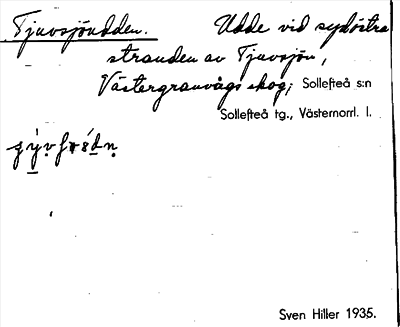 Tjuvsjöudden. Udde vid sydöstra
stranden av Tjuvsjön,
Västergranvågs skog; Sollefteå s:n
Sollefteå tg., Västernorrl. l.
Sven Hiller 1935.